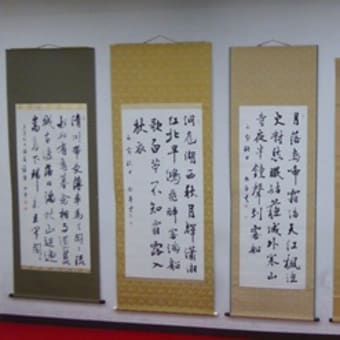 月落烏啼霜滿天江楓漁
火對愁眠姑蘇城外寒山
寺夜半鐘聲到客船
洞庭湖西秋月輝瀟湘
江北早鴻飛醉客滿船
歌白苧不知霜露入
秋衣
清川帶長薄車馬去閒閒流
水如有意暮禽相與還荒
城臨古渡落日滿秋山迢遞
嵩高下歸來且閉關